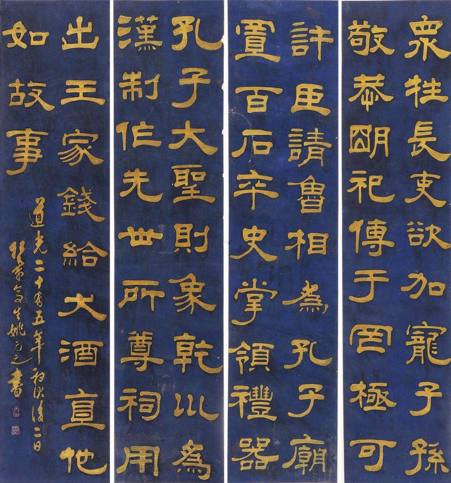 衆牲長吏欲加寵子孫
敬恭朙祀傳于罔極可
許臣請魯相為孔子廟
置百石卒史掌領禮器
孔子大聖則象乾川為
漢制作先世所尊祠用
出王家錢給大酒直他
如故事
道光二十有五年初伏後二日
竹葉亭生姚元之書